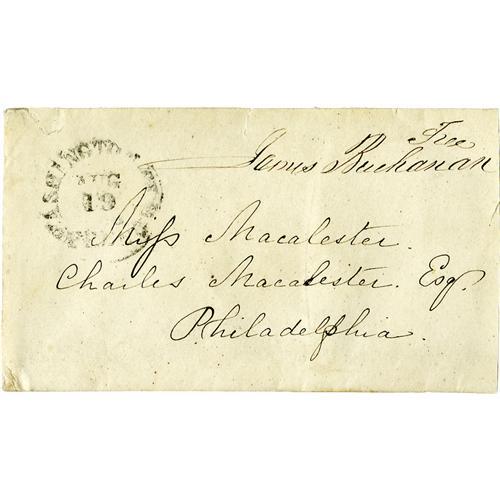 Free
James Buchanan
WASHINGTON CITY
AUG
19
Miss Macalester.
Charles Macalester. Esq.
Philadelphia.